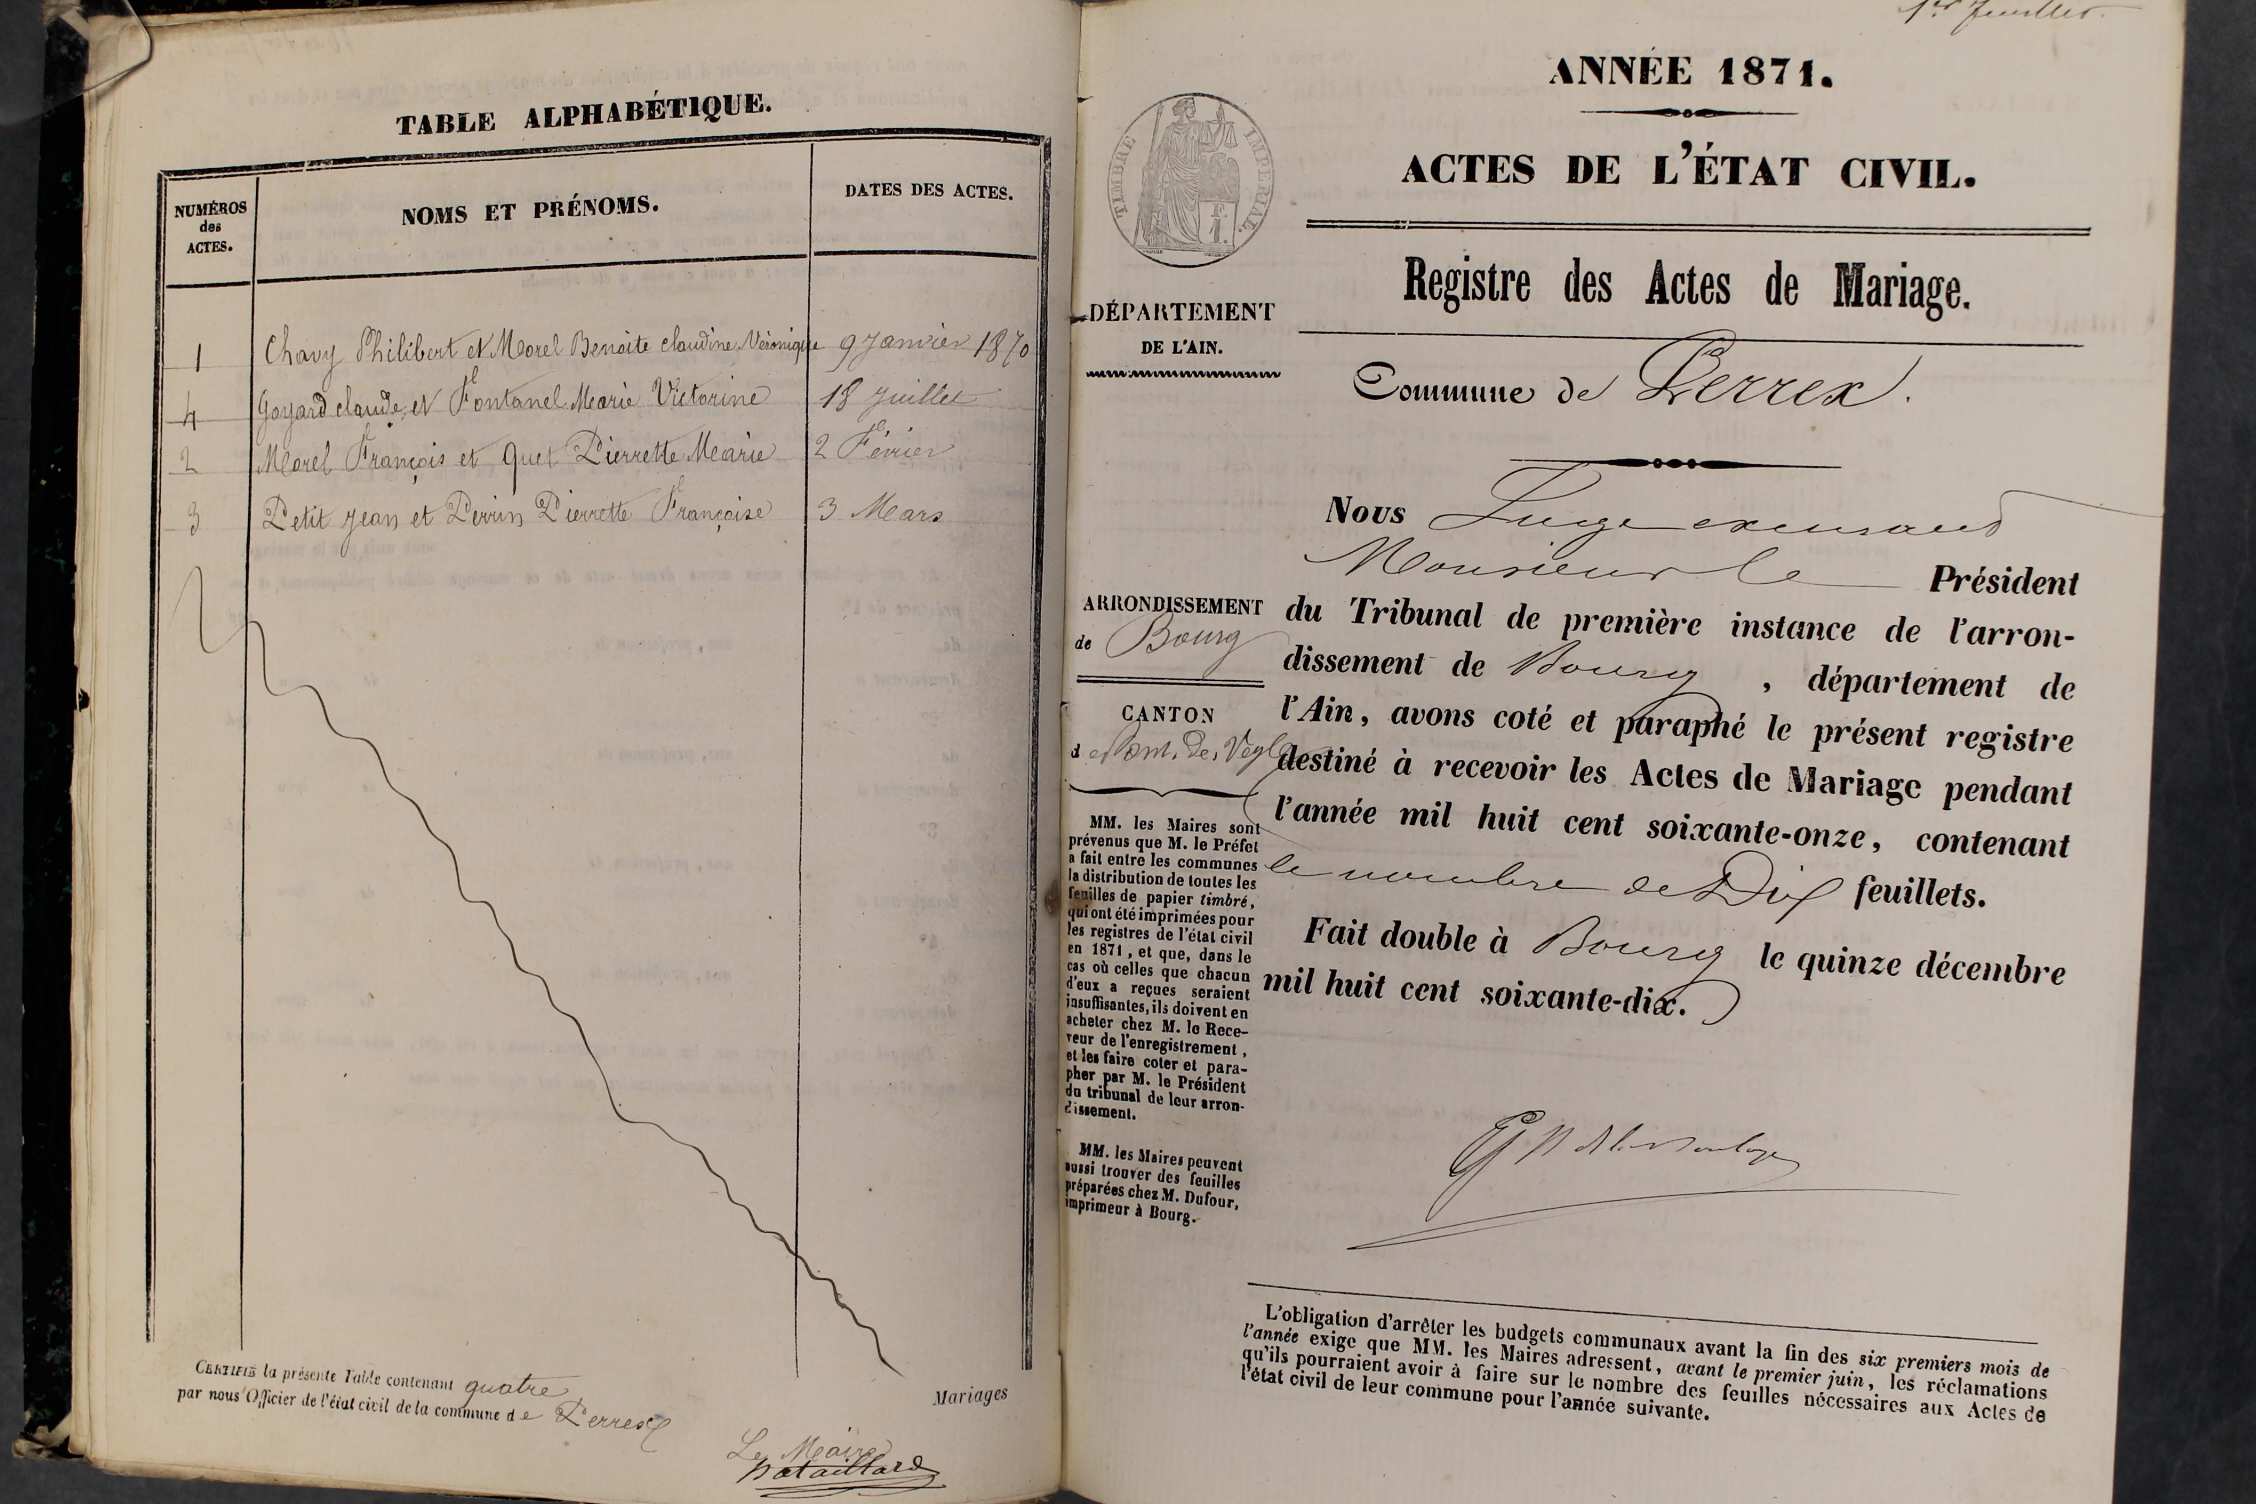 TABLE ALPHABÉTIQUE.
NUMÉROS
des
ACTES.
NOMS ET PRÉNOMS.
DATES DES ACTES.
1 Chavy Philibert et Morel Benoite claudine Véronique 9 Janvier 1870
4 Goyard claude, et Fontanel Marie Victorine 18 Juillet
2 Morel François et Quet Pierrette Marie 2 Février
3 Petit Jean et Perrin Pierrette Françoise 3 Mars
CERTIFIÉ la présente Table contenant quatre
par nous Officier de l'état civil de la commune de Perrex
Mariages
Le Maire
Bataillard
1er feuillet.
ANNÉE 1871.
TIMBRE IMPERIAL.
1.
ACTES DE L'ÉTAT CIVIL.
Registre des Actes de Mariage.
DÉPARTEMENT
DE L'AIN.
Commune de Perrex.
ARRONDISSEMENT
de Bourg
CANTON
de Pont-de-Veyle
MM. les Maires sont
prévenus que M. le Préfet
a fait entre les communes
la distribution de toutes les
feuilles de papier timbré,
qui ont été imprimées pour
les registres de l'état civil
en 1871, et que, dans le
cas où celles que chacun
d'eux a reçues seraient
insuffisantes, ils doivent en
acheter chez M. le Rece-
veur de l'enregistrement,
et les faire coter et para-
pher par M. le Président
du tribunal de leur arron-
dissement.
MM. les Maires peuvent
aussi trouver des feuilles
préparées chez M. Dufour,
imprimeur à Bourg.
Nous Juge excusant
Monsieur le Président
du Tribunal de première instance de l'arron-
dissement de Bourg, département de
l'Ain, avons coté et paraphé le présent registre
destiné à recevoir les Actes de Mariage pendant
l'année mil huit cent soixante-onze, contenant
le nombre de Dix feuillets.
Fait double à Bourg le quinze décembre
mil huit cent soixante-dix.
L'obligation d'arrêter les budgets communaux avant la fin des six premiers mois de
l'année exige que MM. les Maires adressent, avant le premier juin, les réclamations
qu'ils pourraient avoir à faire sur le nombre des feuilles nécessaires aux Actes de
l'état civil de leur commune pour l'année suivante.